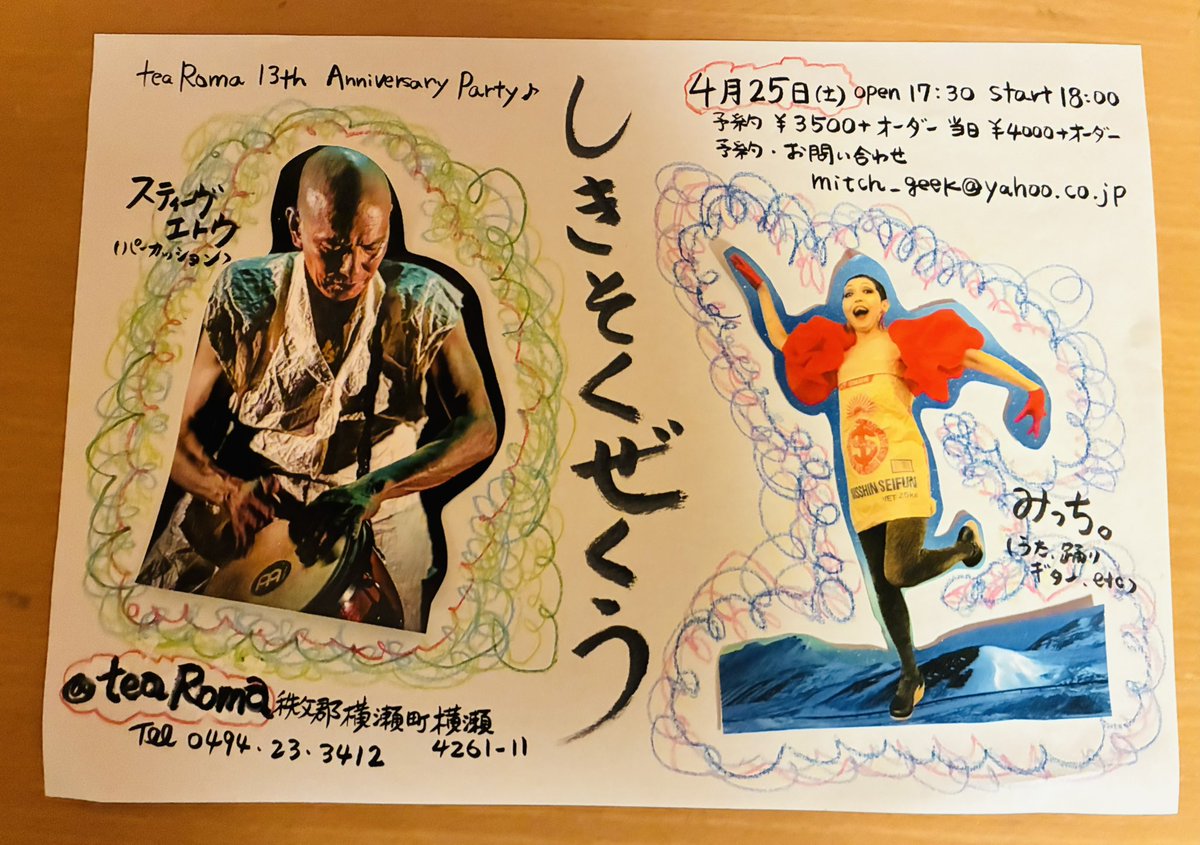 tea Roma 13th Anniversary Party♪
スティーヴ
エトウ
(パーカッション)
しきそくぜくう
4月25日(土) open 17:30 start 18:00
予約 ¥3500+オーダー 当日 ¥4000+オーダー
予約・お問い合わせ
mitch_geek@yahoo.co.jp
NISSHIN SEIFUN
みっち。
(うた、踊り
ギター、etc)
@ tea Roma 秩父郡横瀬町横瀬
4261-11
Tel 0494.23.3412